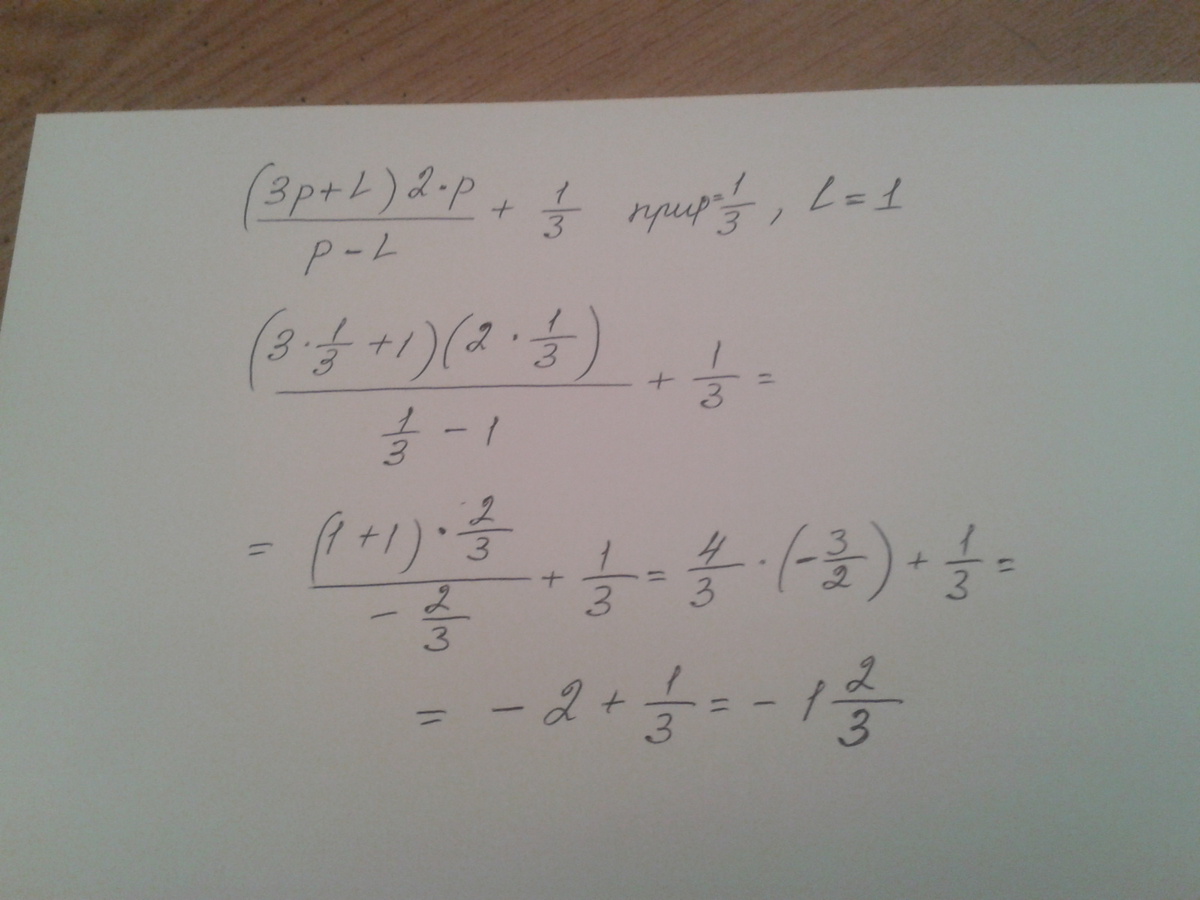 (3p+L)2·p/p-L + 1/3 при p=1/3, L=1
(3·1/3+1)(2·1/3)/1/3-1 + 1/3 =
= (1+1)·2/3/-2/3 + 1/3 = 4/3·(-3/2) + 1/3 =
= -2 + 1/3 = -1 2/3